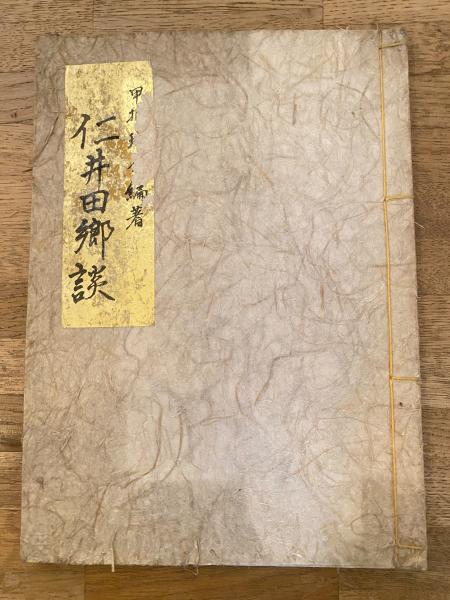 甲 編著
仁井田郷談